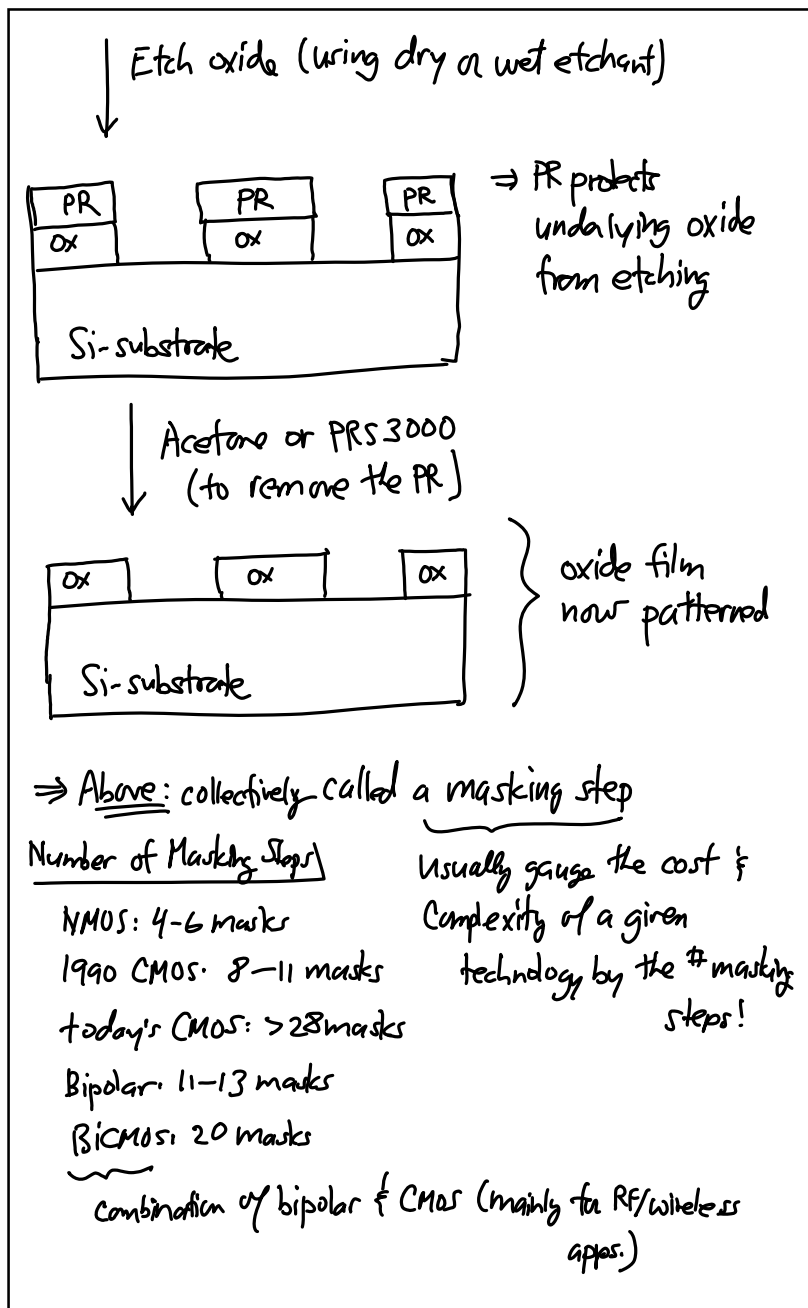 Etch oxide (using dry or wet etchant)
PR PR PR
OX OX OX
⇒ PR protects
underlying oxide
from etching
Si-substrate
Acetone or PRS3000
(to remove the PR)
OX OX OX
Si-substrate
oxide film
now patterned
⇒ Above: collectively called a masking step
Number of Masking Steps
NMOS: 4-6 masks
1990 CMOS: 8-11 masks
today's CMOS: >28 masks
Bipolar: 11-13 masks
BiCMOS: 20 masks
combination of bipolar & CMOS (mainly for RF/wireless
apps.)
usually gauge the cost &
complexity of a given
technology by the # masking
steps!